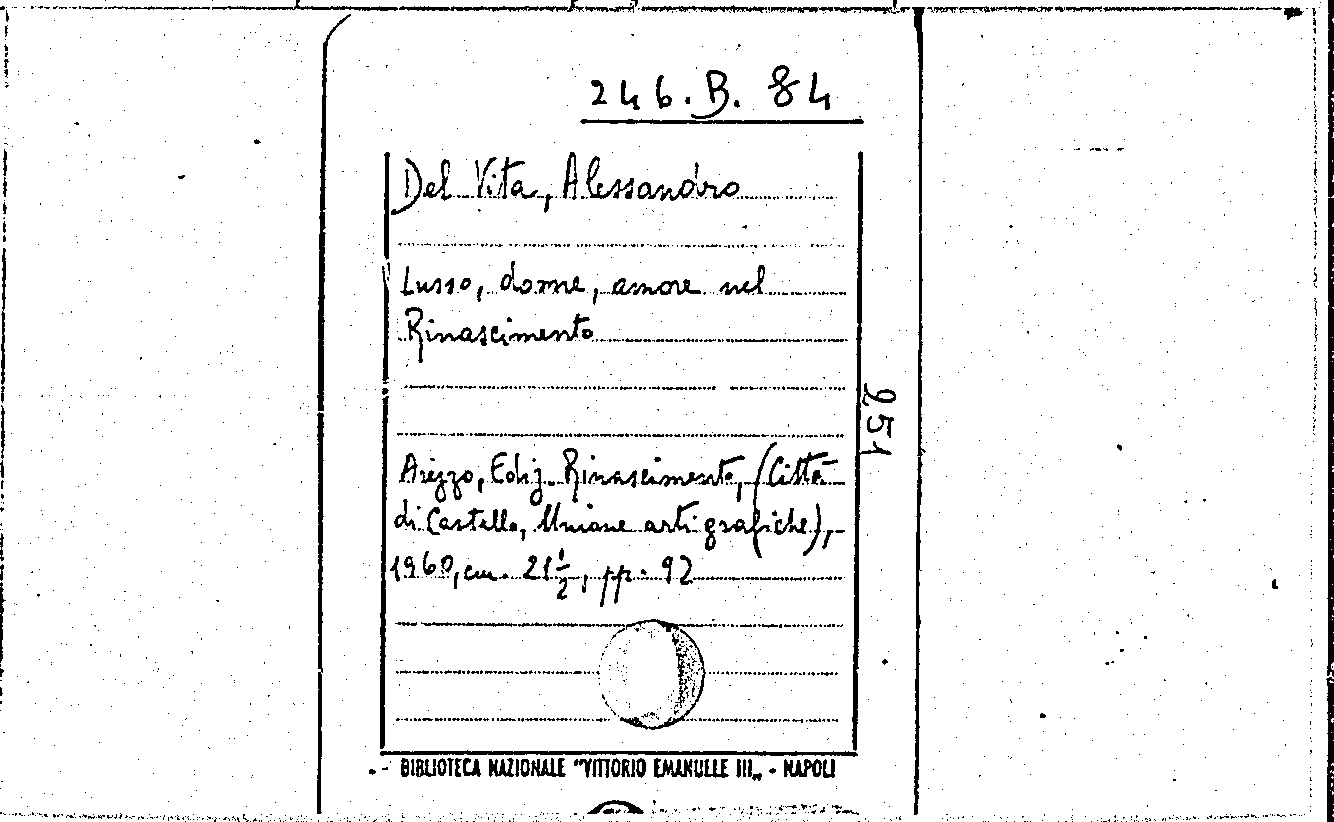 246.B. 84
Del Vita, Alessandro
Lusso, donne, amore nel
Rinascimento
251
Arezzo, Ediz. Rinascimento, (Città
di Castello, Unione arti grafiche),
1960, cm. 21 1/2, pp. 92
BIBLIOTECA NAZIONALE "VITTORIO EMANUELE III„ - NAPOLI